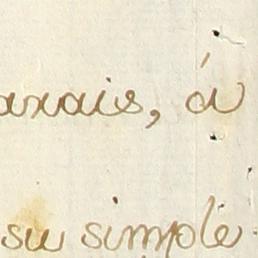 arais, á
su simple